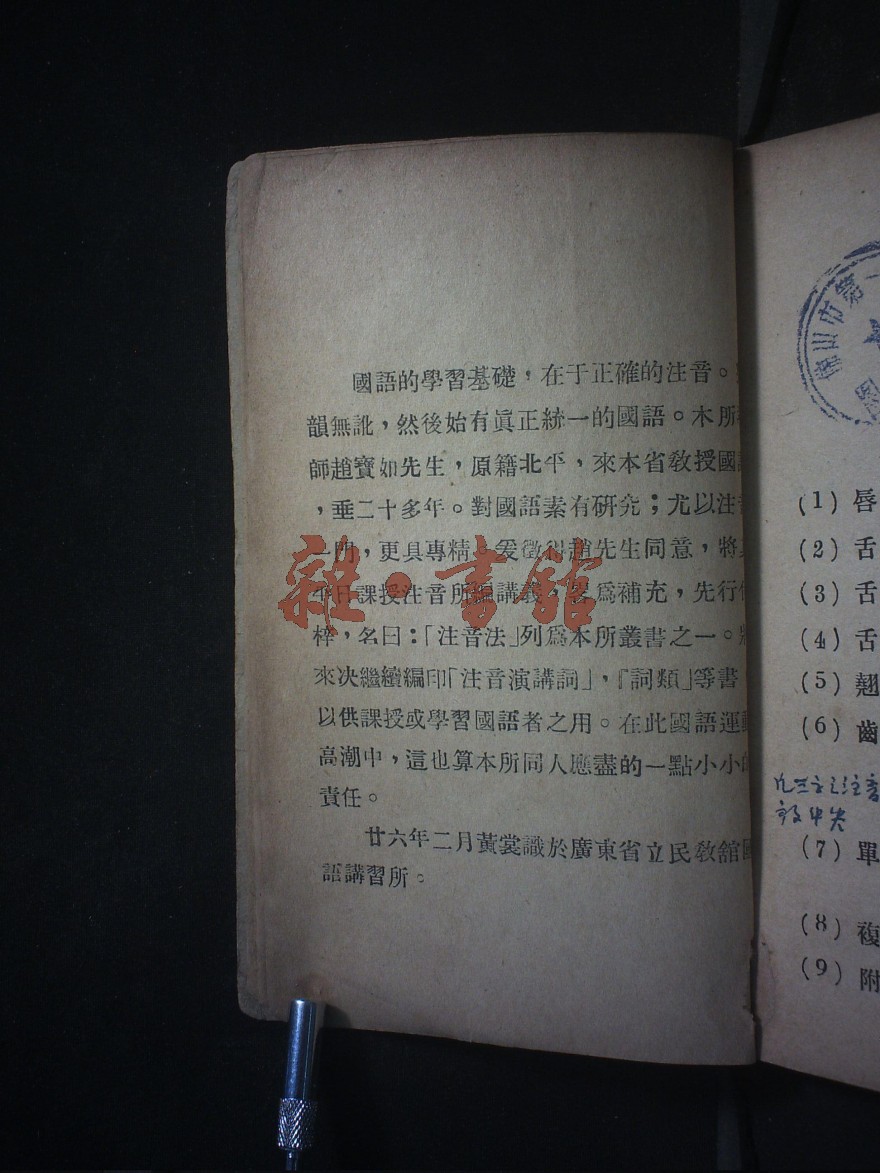 國語的學習基礎，在于正確的注音。
韻無訛，然後始有眞正統一的國語。本所
師趙寶如先生，原籍北平，來本省敎授國
，垂二十多年。對國語素有研究；尤以注音
一門，更具專精。爰徵得趙先生同意，將
平日課授注音所編講義，畧爲補充，先行
梓，名曰：「注音法」列爲本所叢書之一。將
來决繼續編印「注音演講詞」，『詞類」等書
以供課授或學習國語者之用。在此國語運動
高潮中，這也算本所同人應盡的一點小小的
責任。
廿六年二月黃裳識於廣東省立民敎舘國
語講習所。
雜·書館
佛山市第一
(1) 唇
(2) 舌
(3) 舌
(4) 舌
(5) 翹
(6) 齒
(7) 單
(8) 複
(9) 附